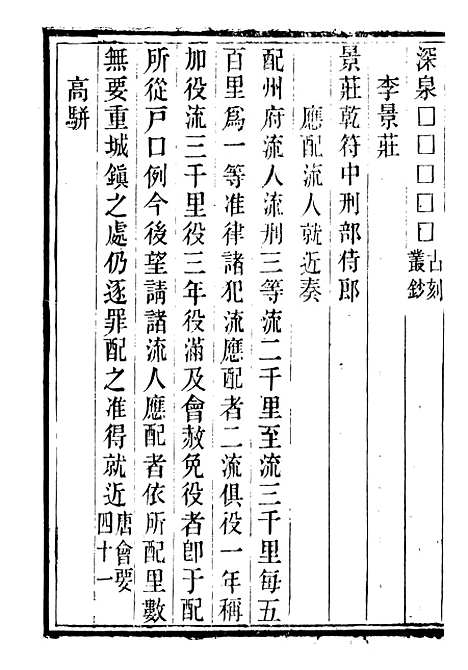 深泉□□□□□古刻叢鈔
李景莊
景莊乾符中刑部侍郎
應配流人就近奏
配州府流人流刑三等流二千里至流三千里每五
百里爲一等准律諸犯流應配者二流俱役一年稱
加役流三千里役三年役滿及會赦免役者卽于配
所從戸口例今後望請諸流人應配者依所配里數
無要重城鎭之處仍逐罪配之准得就近唐會要四十一
高駢